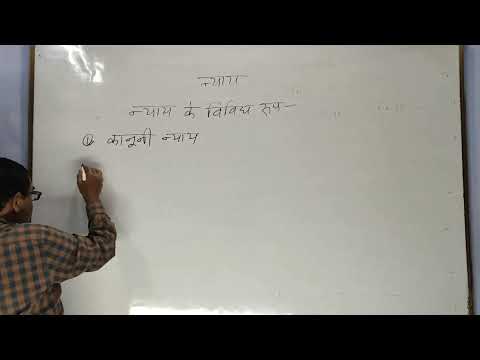 न्याय
न्याय के विविध रूप-
① कानूनी न्याय